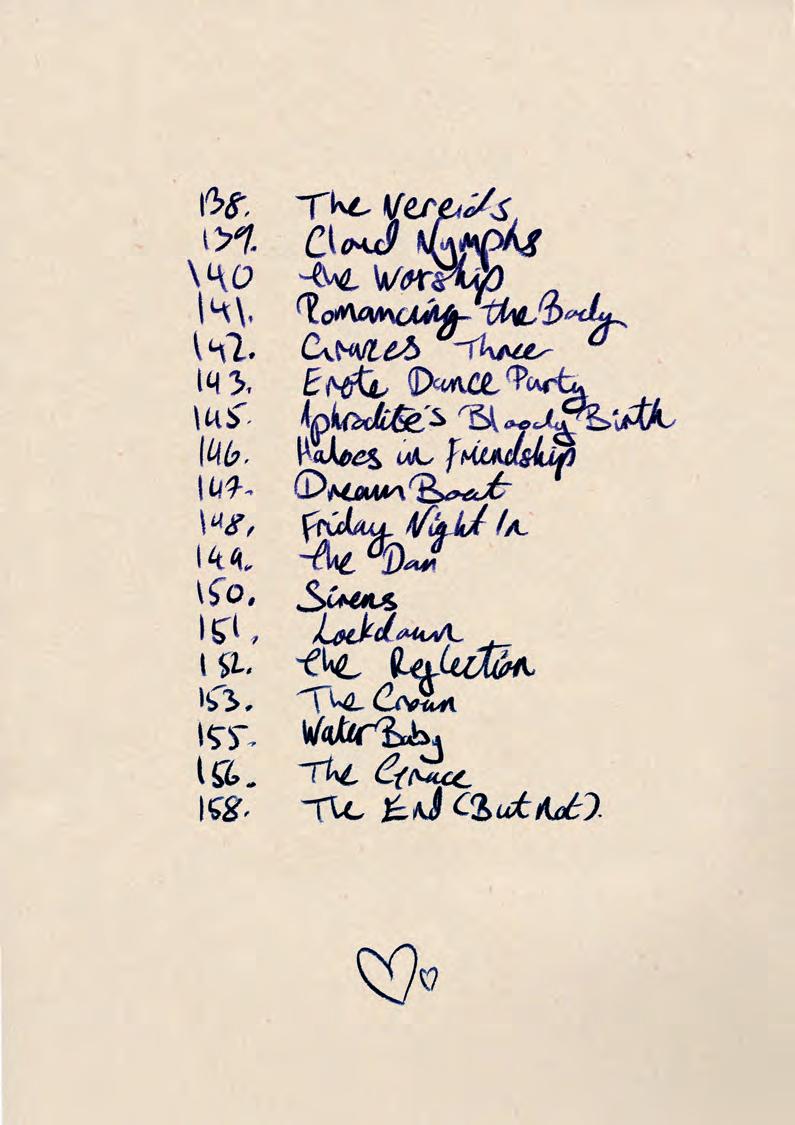 138. The Nereids
139. Cloud Nymphs
140 the Worship
141. Romancing the Body
142. Graces Three
143. Erote Dance Party
145. Aphrodite's Bloody Birth
146. Haloes in Friendship
147. Dream Boat
148. Friday Night In
149. the Dan
150. Sirens
151. Lockdown
152. the Reflection
153. The Crown
155. Water Baby
156. The Grace
158. The End (But Not).